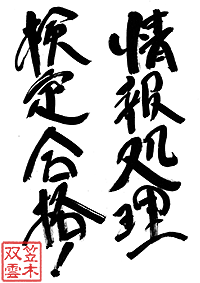 情報処理
検定合格!
笠木
双雲